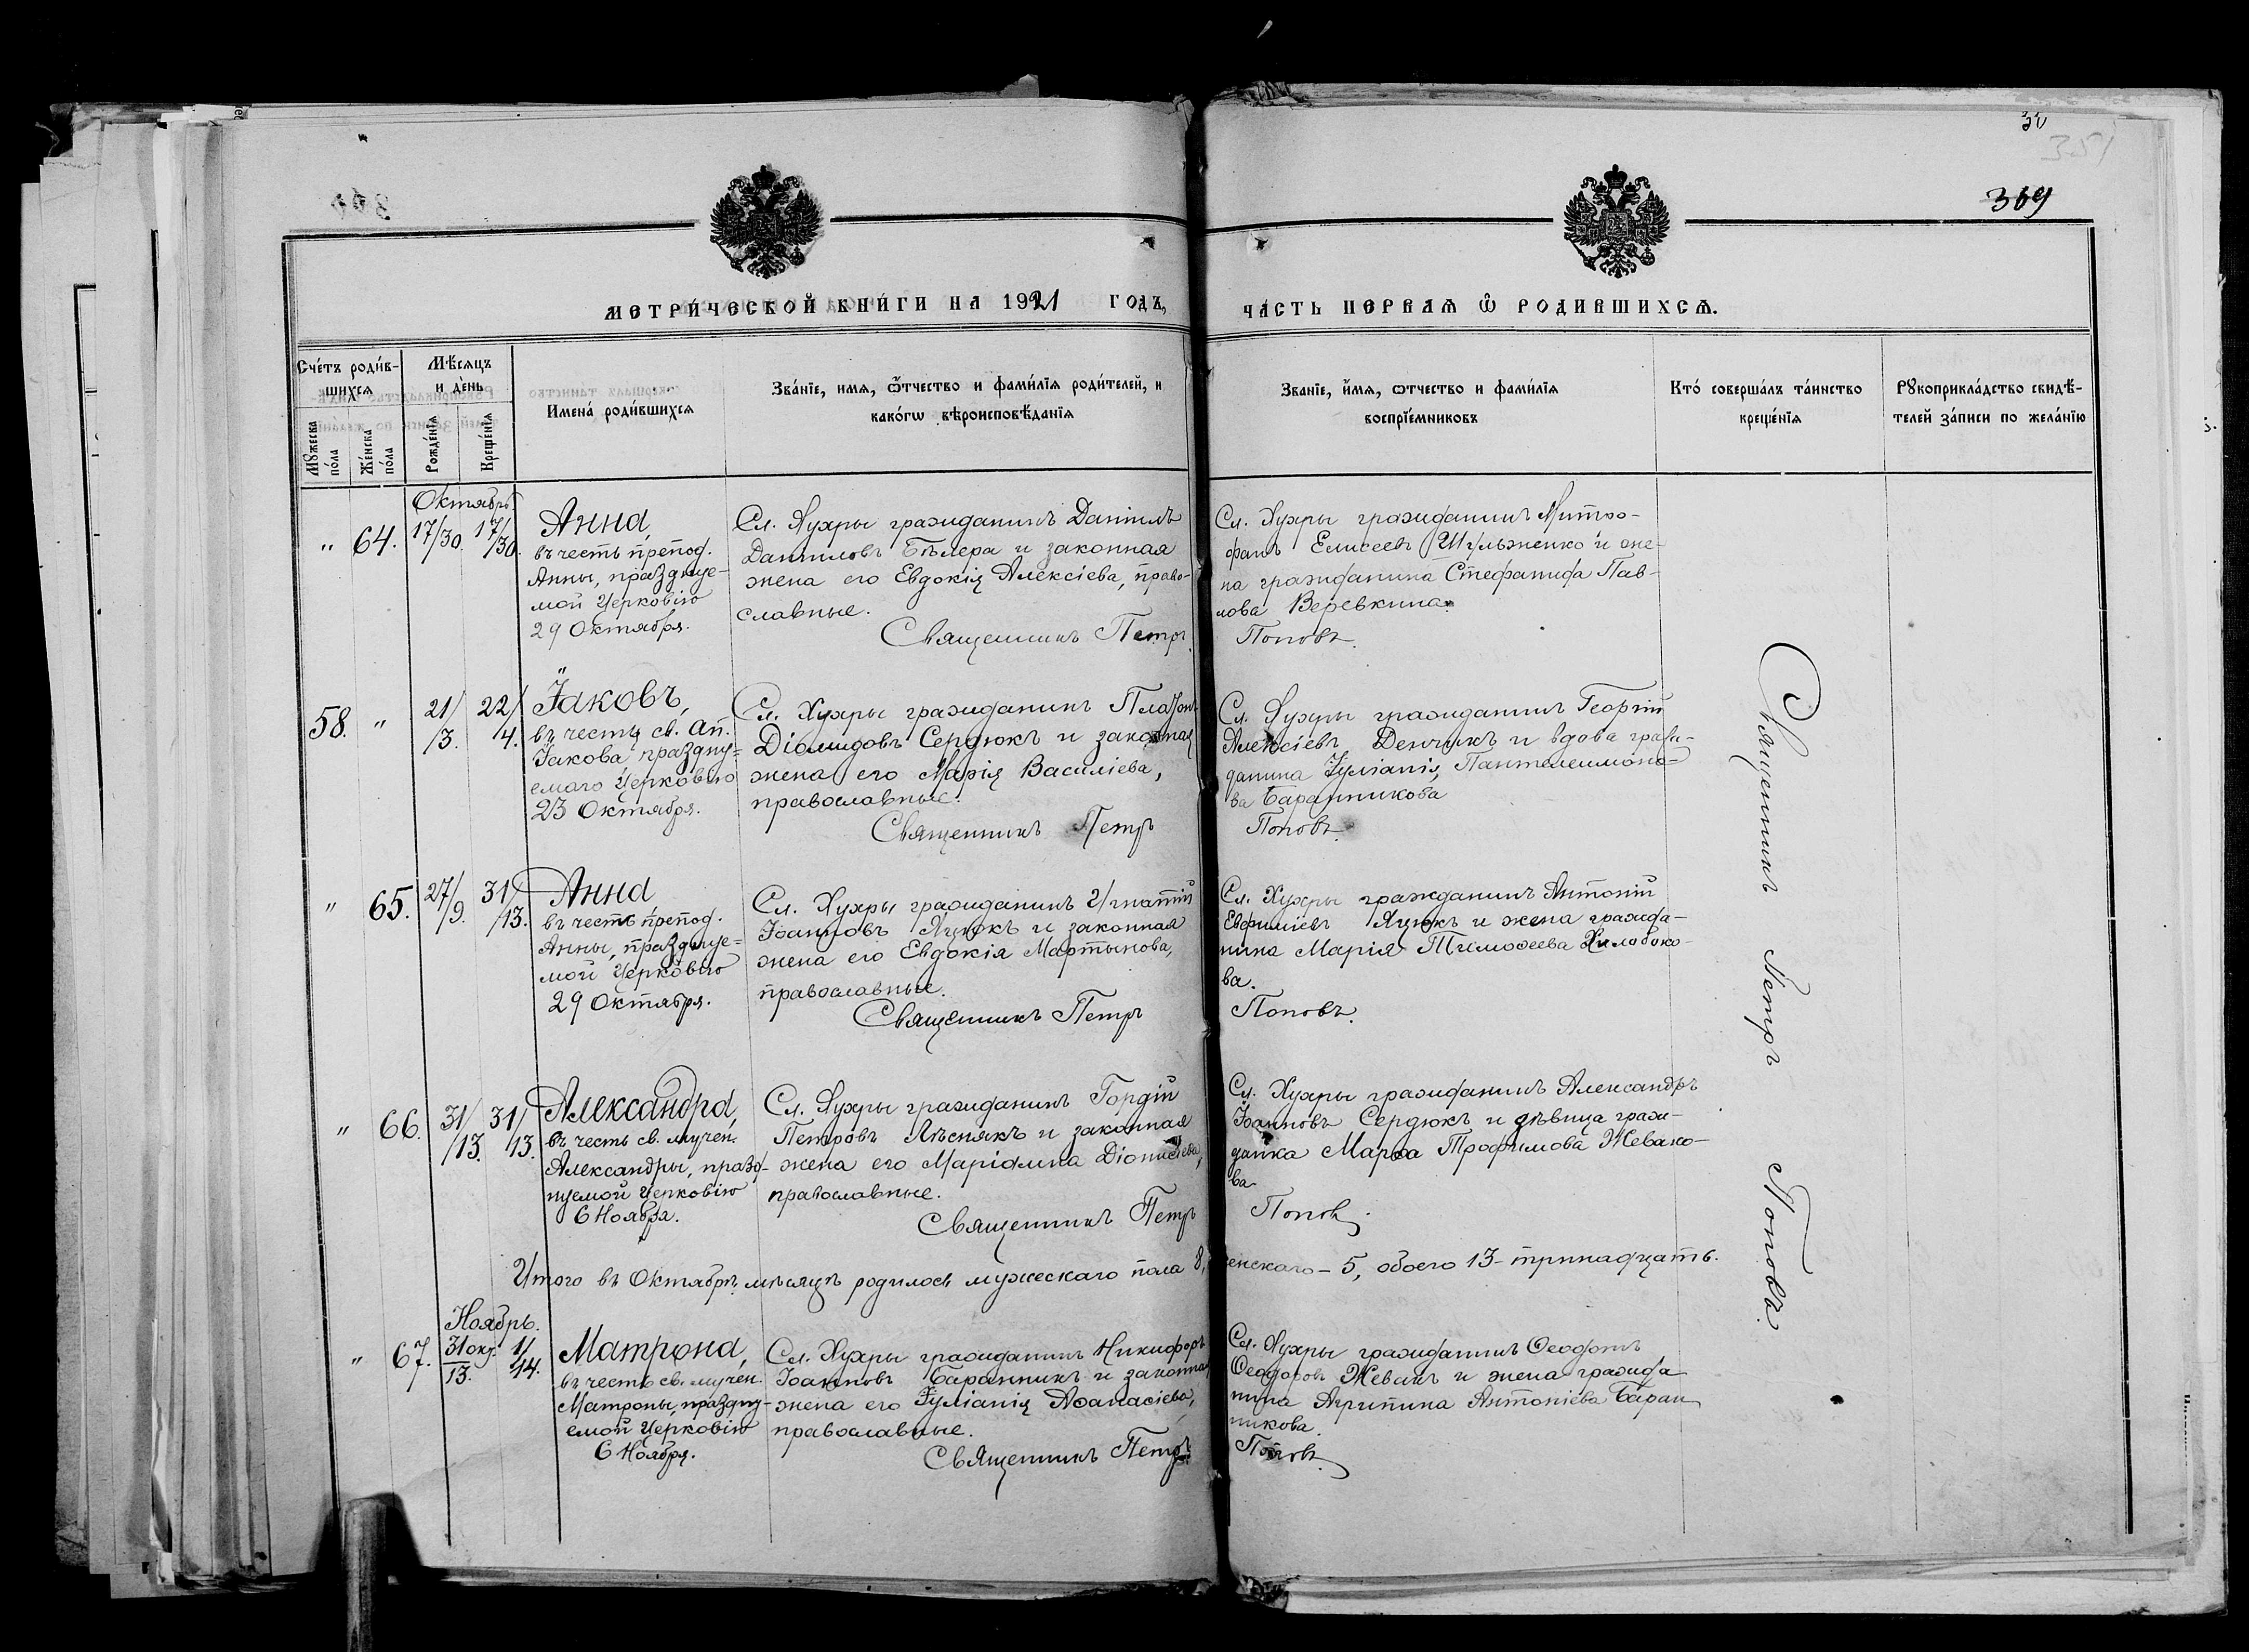 351
369
МЕТРИ́ЧЕСКОЙ КНИ́ГИ НА 1921 ГОДЪ,
ЧА́СТЬ ПЕРВАѦ Ѿ РОДИВШИХСѦ.
Сче́тъ роди́в-
шихсѧ
Мꙋжеска
по́ла
Же́нска
по́ла
Мѣ́сѧцъ
и де́нь
Рожде́нїѧ
Креще́нїѧ
Имена́ роди́вшихсѧ
Зва́нїе, имѧ, ѻ҆́тчество и фами́лїѧ роди́телей, и
како́гѡ вѣроисповѣ́данїѧ
Званїе, и҆́мѧ, ѻтчество и фами́лїѧ
воспрїе́мниковъ
Кто́ соверша́лъ та́инство
креще́нїѧ
Рꙋкоприкла́дство свидѣ́-
телей за́писи по жела́нїю
Октябрь.
" 64. 17/30. 17/30.
Анна,
въ честь препод.
Анны, празднуе-
мой Церковію
29 Октября.
Сл. Хухры гражданинъ Даніилъ
Данииловъ Бѣлера и законная
жена его Евдокія Алексіева, право-
славные.
Священникъ Петръ
Сл. Хухры гражданинъ Митро-
фанъ Елисеевъ Шульженко и же-
на гражданина Стефанида Пав-
лова Веревкина.
Поповъ.
58. " 21/3. 22/4.
Іаковъ,
въ честь св. Ап.
Іакова, праздну-
емаго Церковію
23 Октября.
Сл. Хухры гражданинъ Платонъ
Діомидовъ Сердюкъ и законная
жена его Марія Василіева,
православные.
Священникъ Петръ
Сл. Хухры гражданинъ Георгій
Алексіевъ Денчикъ и вдова граж-
данина Іуліанія Пантелеимоно-
ва Баранникова
Поповъ.
" 65. 27/9. 31/13.
Анна
въ честь препод.
Анны, празднуе-
мой Церковію
29 Октября.
Сл. Хухры гражданинъ Игнатій
Іоанновъ Яцюкъ и законная
жена его Евдокія Мартынова,
православные.
Священникъ Петръ
Сл. Хухры гражданинъ Антоній
Евфиміевъ Яцюкъ и жена гражда-
нина Марія Тимоѳеева Хилобоко-
ва.
Поповъ.
" 66. 31/13. 31/13.
Александра,
въ честь св. мучен.
Александры, празд-
нуемой Церковію
6 Ноября.
Сл. Хухры гражданинъ Гордій
Петровъ Лѣснякъ и законная
жена его Маріамна Діонисіева,
православные.
Священникъ Петръ
Сл. Хухры гражданинъ Александръ
Іоанновъ Сердюкъ и дѣвица граж-
данка Марѳа Трофимова Жевако-
ва
Поповъ.
Итого въ Октябрѣ мѣсяцѣ родилось мужескаго пола 8, женскаго - 5, обоего 13 - тринадцать.
Ноябрь.
" 67. 31 окт./13. 1/14.
Матрона,
въ честь св. мучен.
Матроны, праздну-
емой Церковію
6 Ноября.
Сл. Хухры гражданинъ Никифоръ
Іоанновъ Баранникъ и законная
жена его Іуліанія Аѳанасіева,
православные.
Священникъ Петръ
Сл. Хухры гражданинъ Ѳеодотъ
Ѳеодоровъ Жевакъ и жена гражда
нина Агрипина Антоніева Баран
никова.
Поповъ.
Священникъ Петръ Поповъ.